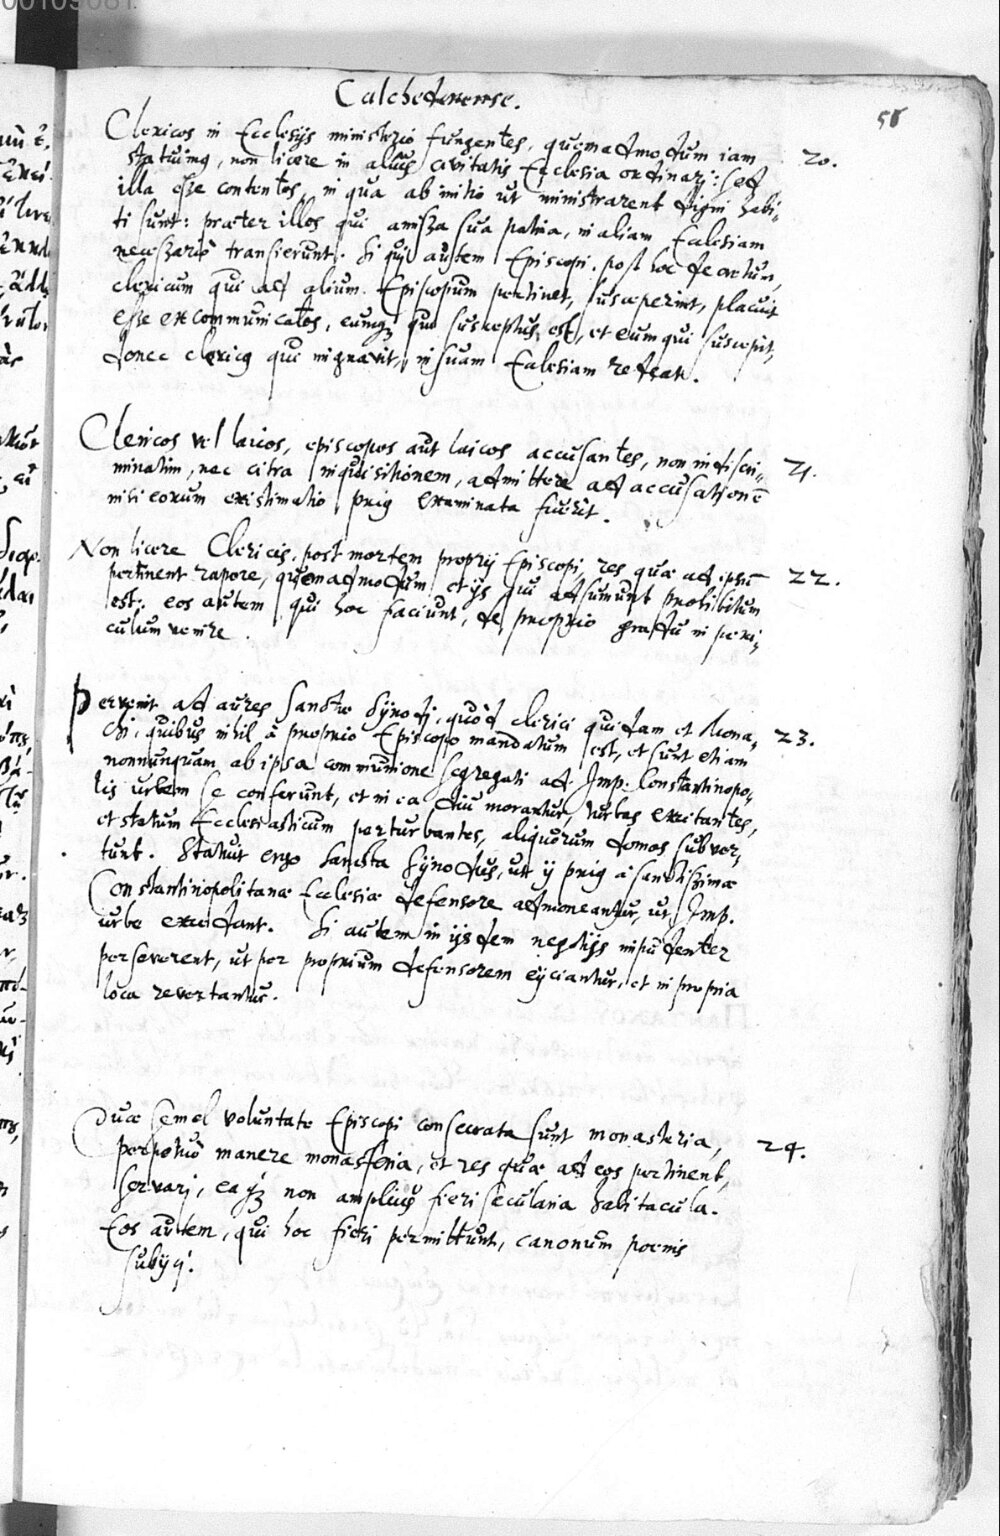 Calchedonense.
58
Clericos in Ecclesijs ministerio fungentes, quemadmodum iam 20.
statuimus, non licere in alius civitatis Ecclesia ordinarj: sed
illa esse contentos, in qua ab initio ut ministrarent digni habi-
ti sunt: præter illos qui amissa sua patria, in aliam Ecclesiam
necessariò transierunt. Si quis autem Episcopi, post hoc decretum,
clericum qui ad alium Episcopum pertinet, susceperint, placuit
esse excommunicatos, eumque qui susceptus est, et eum qui suscepit,
donec clericus qui migravit, in suam Ecclesiam redeat.
Clericos vel laicos, episcopos aut laicos accusantes, non indiscri- 21.
minatim, nec citra inquisitionem, admittere ad accusationē
nisi eorum existimatio prius examinata fuerit.
Non licere Clericis, post mortem proprij Episcopi, res quæ ad ipsū 22.
pertinent rapere, quemadmodum et ijs qui adsumunt prohibitum
est: eos autem qui hoc faciunt, de proprio gradu in peri-
culum venire.
Pervenit ad aures sanctæ Synodj, quòd clerici quidam et Mona- 23.
chi, quibus nihil à proprio Episcopo mandatum est, et sunt etiam
nonnunquam ab ipsa communione segregati ad Imp. Constantinopo-
lis urbem se conferunt, et in ea diu morantur, turbas excitantes,
et statum Ecclesiasticum perturbantes, aliquorum domos subver-
tunt. Statuit ergo Sancta Synodus, ut ij prius à sanctissimæ
Constantinopolitanæ Ecclesiæ defensore admoneantur, ut Imp.
urbe excedant. Si autem in ijsdem negotijs impudenter
perseverent, ut per proprium defensorem eijciantur, et in propria
loca revertantur.
Quæ semel voluntate Episcopi consecrata sunt monasteria, 24.
perpetuò manere monasteria, et res quæ ad eos pertinent,
servarj, eaque non amplius fieri secularia habitacula.
Eos autem, qui hoc fieri permittunt, canonum poenis
subijcj.